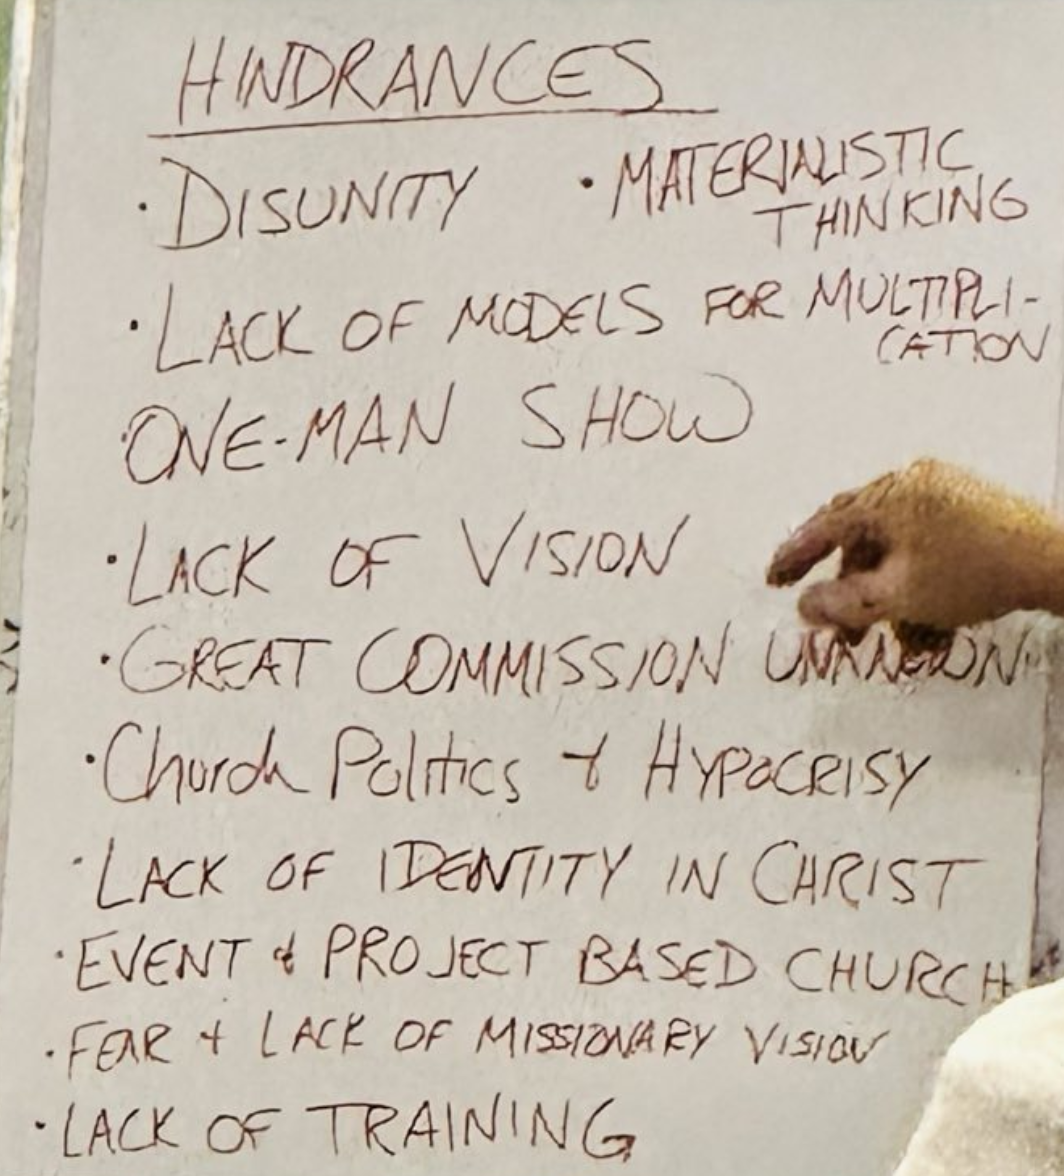 HINDRANCES
· DISUNITY · MATERIALISTIC
THINKING
· LACK OF MODELS FOR MULTIPLI-
CATION
· ONE-MAN SHOW
· LACK OF VISION
· GREAT COMMISSION UNKNOWN
· Church Politics & HYPOCRISY
· LACK OF IDENTITY IN CHRIST
· EVENT & PROJECT BASED CHURCH
· FEAR & LACK OF MISSIONARY VISION
· LACK OF TRAINING